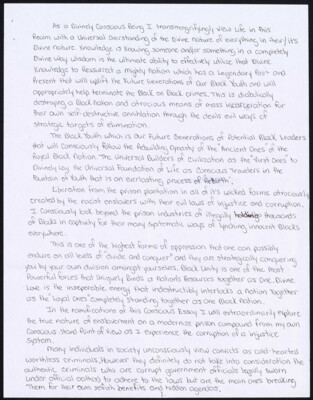 As a Divinely Conscious Being I transmagnifyingly view Life in this
Realm with a Universal Overstanding of the Divine Nature of everything in their/it's
Divine Nature. Knowledge is knowing someone and/or something in a completely
Divine way. Wisdom is the ultimate ability to effectively utilize that Divine
Knowledge to Resurrect a Mighty Nation which has a Legendary Past and
Present that will uplift the Future Generations of Our Black Youth and will
appropriately help terminate the Black on Black crimes. This is diabolically
destroying a Black Nation and atrocious means of mass incarceration for
their own self-destructive annihilation through the devils evil ways of
strategic targets of elimination.
The Black Youth which is our Future Generations of Potential Black Leaders
that will Consciously follow the Rebuilding Dynasty of the Ancient Ones of the
Royal Black Nation. The Universal Builders of Civilization as the "First Ones" to
Divinely lay the Universal Foundation of Life as Conscious Travelers in the
Fountain of Youth that is an Everlasting process of Rebirth.
Liberation from the prison plantation in all of it's wicked forms atrociously
created by the racist enslavers with their evil laws of injustice and corruption.
I Consciously look beyond the prison industries of illegally holding thousands
of Blacks in captivity for their many systematic ways of lynching innocent Blacks
everywhere.
This is one of the highest forms of oppression that one can possibly
endure on all levels of "divide and conquer" and they are strategically conquering
you by your own division amongst yourselves. Black Unity is one of the most
Powerful forces that Uniquely Binds a Nation's Resources together as One. Divine
Love is the inseparable energy that indestructibly interlocks a Nation together
as the "Loyal Ones" completely Standing together as One Black Nation.
In the ramifications of this Conscious Essay I will extraordinarily explore
the true nature of enslavement on a modernize prison compound from my own
Conscious Stand Point of View as I experience the corruption of a injustice
system.
Many individuals in society unconsciously view convicts as cold-hearted
worthless criminals. However, they definitely do not take into consideration the
authentic criminals who are corrupt government officials legally sworn
under official oath(s) to adhere to the laws but are the main ones breaking
them for their own selfish benefits and hidden agendas.